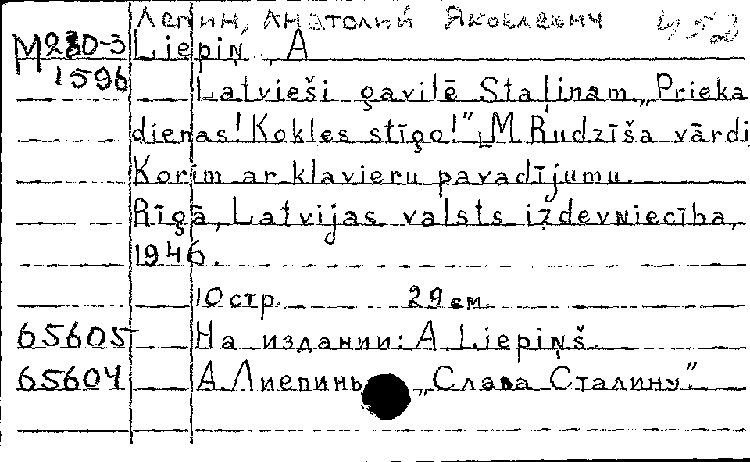 Лепин, Анатолий Яковлевич 452
М280-3 Liepiņ, A
1596
Latvieši gavilē Staļinam „Prieka
dienas! Kokles stīgo!" M Rudzīša vārdi
Korim ar klavieru pavadījumu.
Rīgā, Latvijas valsts izdevniecība,
1946.
10 стр. 29 см.
65605 На издании: A Liepiņš.
65604 А Лиепинь „Слава Сталину"